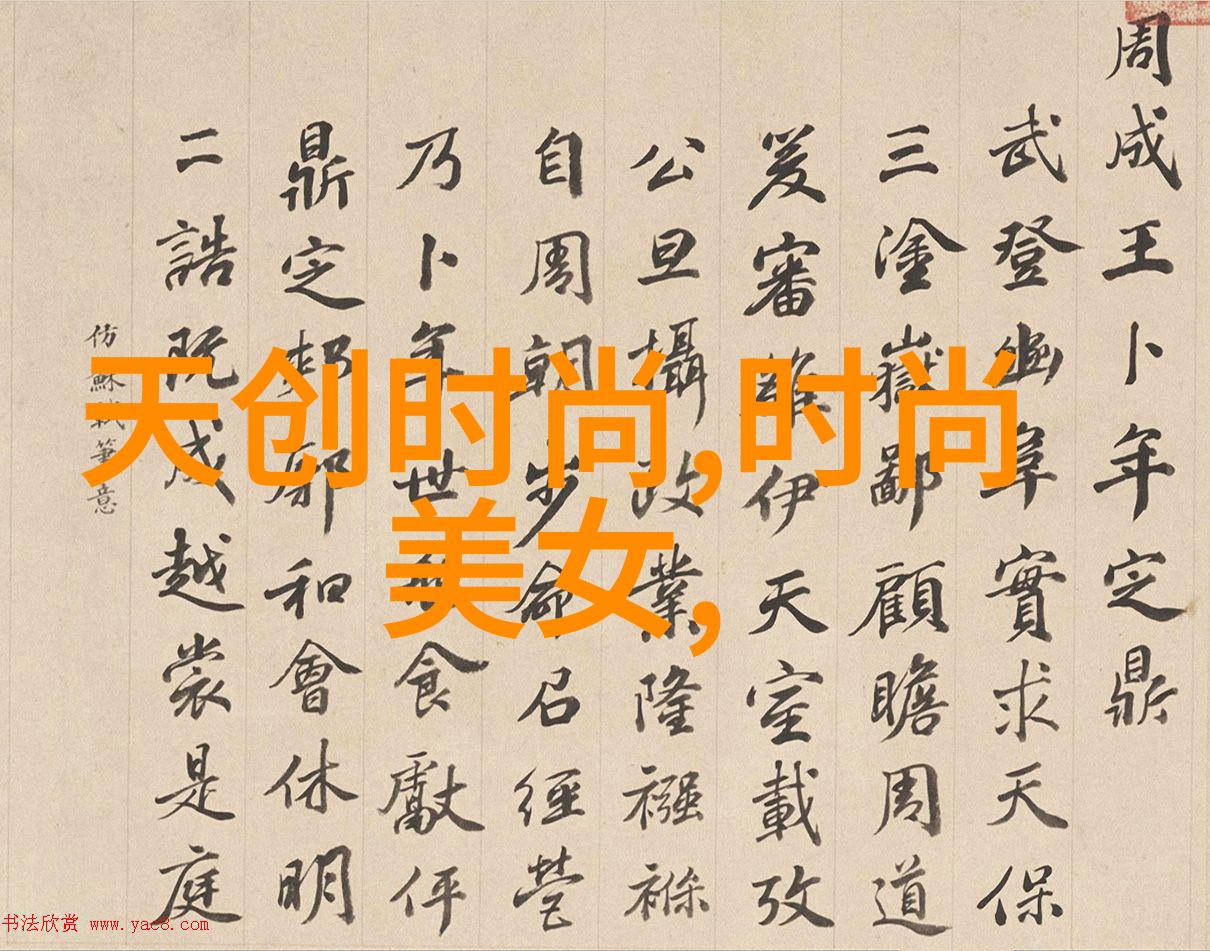 周成王卜年定鼎
武登幽阜實求天保
三塗嶽鄙顧瞻周道
爰審雒伊天室載攷
公旦攝政業隆襁褓
自周朝步命召經營
乃卜年世食獻伻
鼎定郟鄏和會休明
二誥既成越裳是庭
仿蘇軾筆意
天创时尚,时尚
美女,
书法欣赏 www.yac8.com